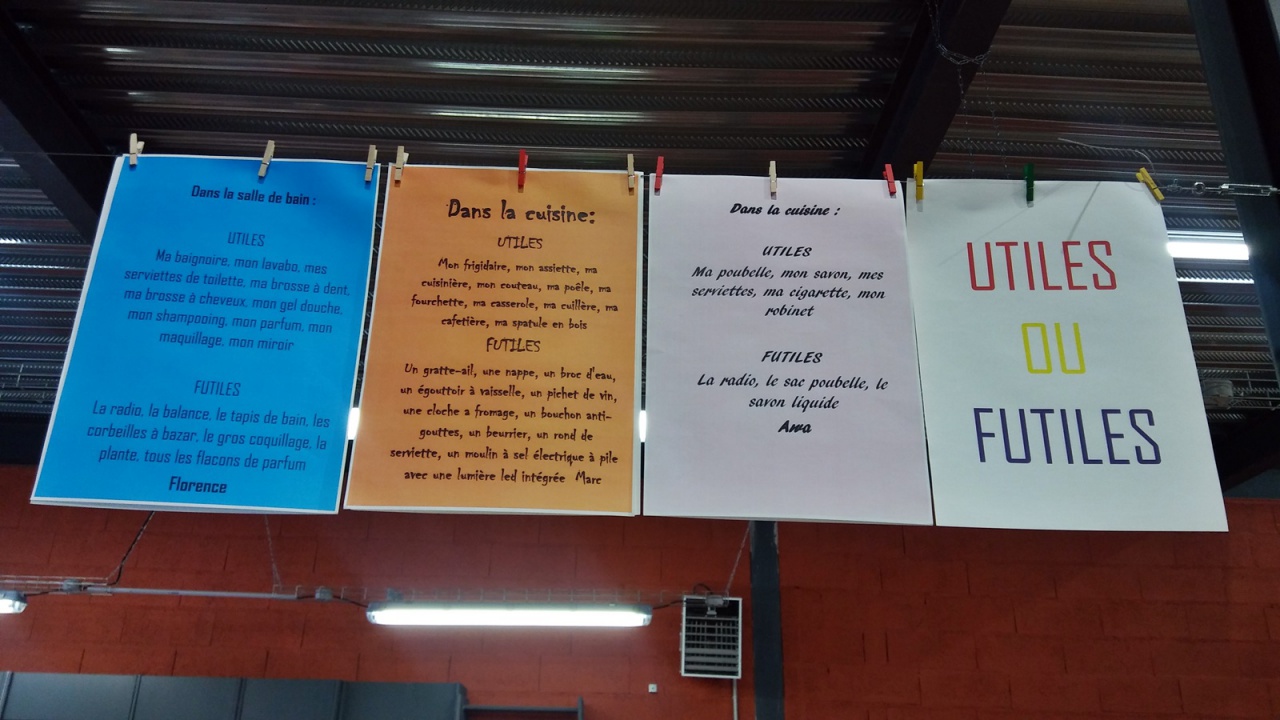 Dans la salle de bain :
UTILES
Ma baignoire, mon lavabo, mes
serviettes de toilette, ma brosse à dent,
ma brosse à cheveux, mon gel douche,
mon shampooing, mon parfum, mon
maquillage, mon miroir
FUTILES
La radio, la balance, le tapis de bain, les
corbeilles à bazar, le gros coquillage, la
plante, tous les flacons de parfum
Florence
Dans la cuisine:
UTILES
Mon frigidaire, mon assiette, ma
cuisinière, mon couteau, ma poêle, ma
fourchette, ma casserole, ma cuillère, ma
cafetière, ma spatule en bois
FUTILES
Un gratte-ail, une nappe, un broc d'eau,
un égouttoir à vaisselle, un pichet de vin,
une cloche a fromage, un bouchon anti-
gouttes, un beurrier, un rond de
serviette, un moulin à sel électrique à pile
avec une lumière led intégrée Marc
Dans la cuisine :
UTILES
Ma poubelle, mon savon, mes
serviettes, ma cigarette, mon
robinet
FUTILES
La radio, le sac poubelle, le
savon liquide
Awa
UTILES
OU
FUTILES